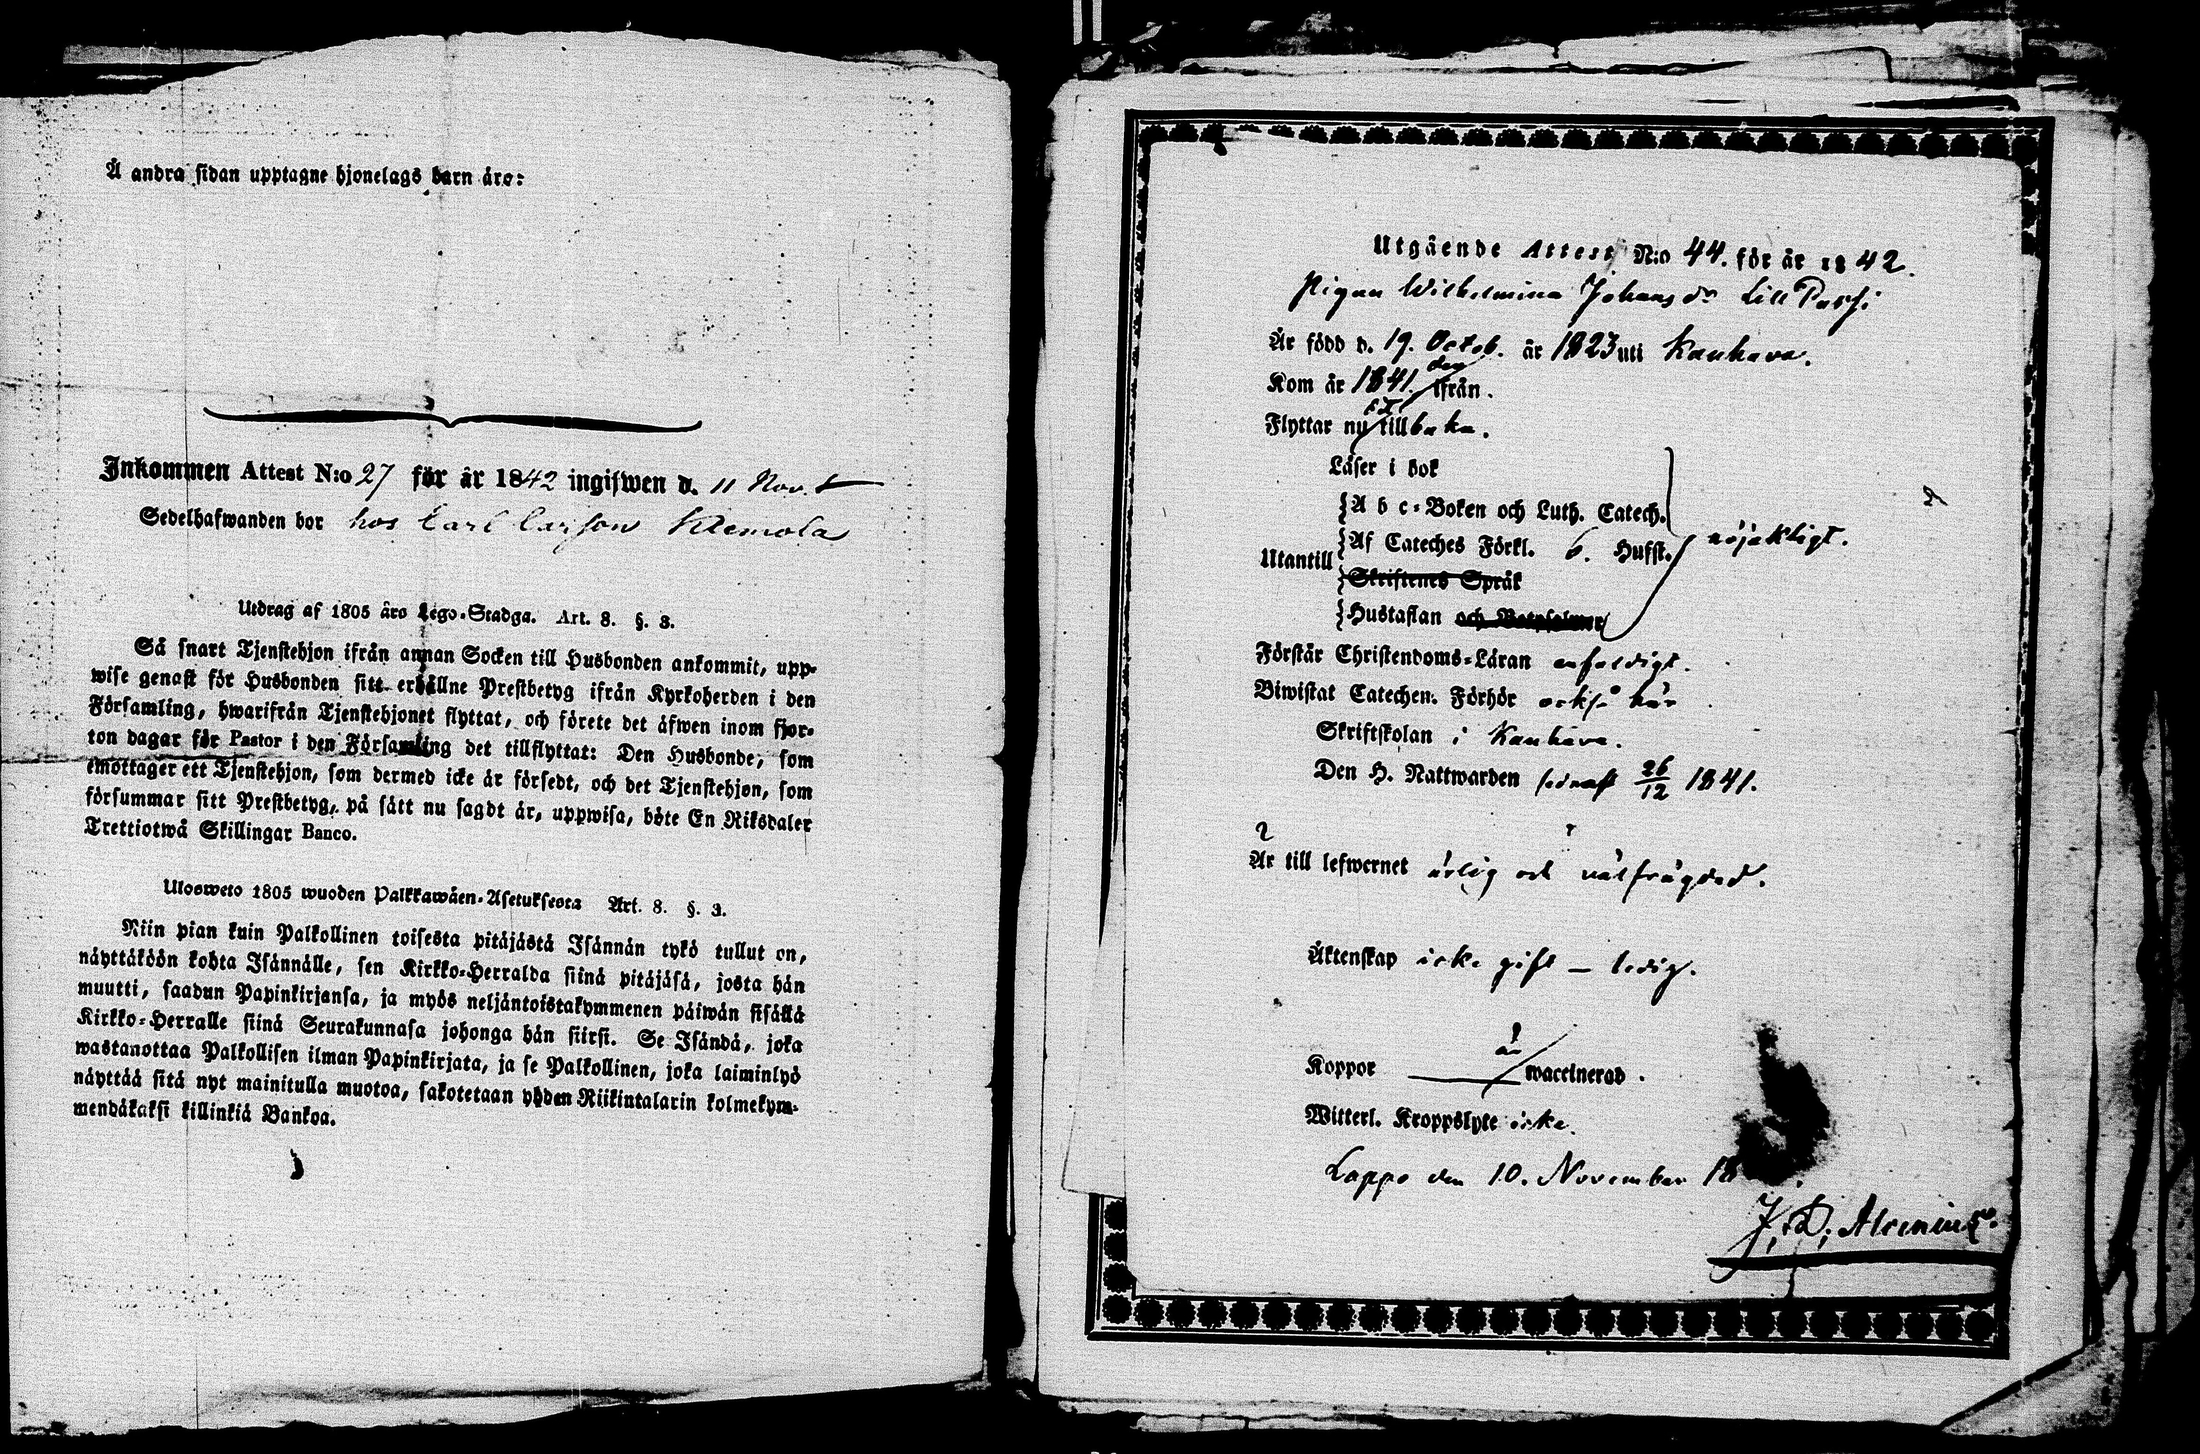 Å andra sidan upptagne hjonelags barn äro:
Inkommen Attest N:o 27 för år 1842 ingifwen d. 11 Nov.
Sedelhafwanden bor hos Carl Carlson Klemola
Utdrag af 1805 års Lego-Stadga. Art. 8. §. 3.
Så snart Tjenstehjon ifrån annan Socken till Husbonden ankommit, upp-
wise genast för Husbonden sitt erhållne Prestbetyg ifrån Kyrkoherden i den
Församling, hwarifrån Tjenstehjonet flyttat, och förete det äfwen inom fjor-
ton dagar för Pastor i den Församling det tillflyttat: Den Husbonde, som
emottager ett Tjenstehjon, som dermed icke är försedt, och det Tjenstehjon, som
försummar sitt Prestbetyg, på sätt nu sagdt är, uppwisa, böte En Riksdaler
Trettiotwå Skillingar Banco.
Ulosweto 1805 wuoden Palkkawäen-Asetuksesta Art. 8. §. 3.
Niin pian kuin Palkollinen toisesta pitäjästä Isännän tykö tullut on,
näyttäköön kohta Isännälle, sen Kirkko-Herralda siinä pitäjäsä, josta hän
muutti, saadun Papinkirjansa, ja myös neljäntoistakymmenen päiwän sisällä
Kirkko-Herralle siinä Seurakunnasa johonga hän siirsi. Se Isändä, joka
wastanottaa Palkollisen ilman Papinkirjata, ja se Palkollinen, joka laiminlyö
näyttää sitä nyt mainitulla muotoa, sakotetaan yhden Riikintalarin kolmekym-
mendäkaksi killinkiä Bankoa.
Utgående Attest N:o 44. för år 1842.
Pigan Wilhelmina Johans dr Lill Passi
Är född d. 19. Octob. år 1823 uti Kauhava.
Kom år 1841. der ifrån.
Flyttar nu dit tillbaka.
Läser i bok
{A b c-Boken och Luth. Catech.
Utantill {Af Cateches Förkl. 6. Hufst. nöjaktigt.
{Skriftenes Språk
{Hustaflan och Botpsalmer
Förstår Christendoms-Läran enfaldigt.
Biwistat Catechen. Förhör också här
Skriftskolan i Kauhava.
Den H. Nattwarden sednast 26/12 1841.
Är till lefwernet ärlig och välfrägdad.
Äktenskap icke gift – ledig.
Koppor är waccinerad.
Witterl. Kroppslyte icke.
Lappo den 10. November 18
J. D. Alcenius.